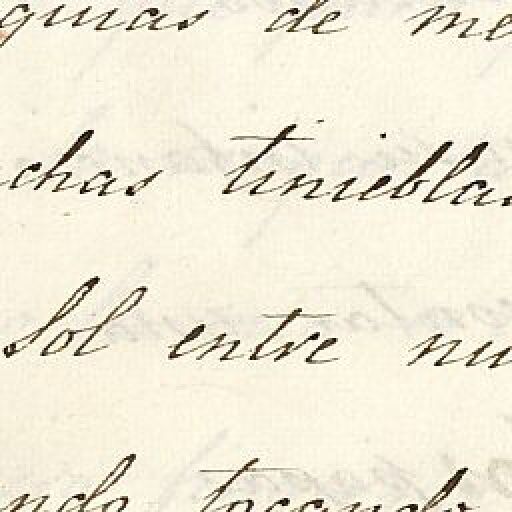 guias de me
chas tinieblas
Sol entre nu
ndo tocando